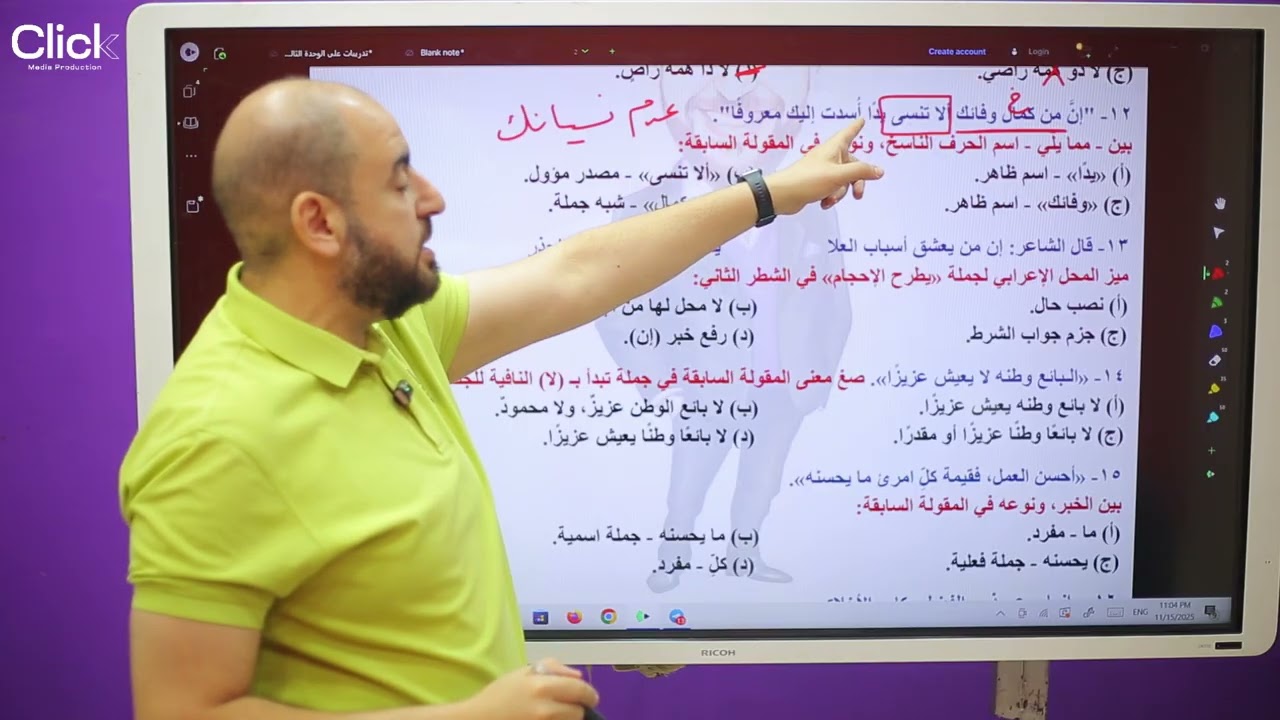 Click
Media Production
*تدريبات على الوحدة الثالـ...
Blank note*
Create account
Login
(ج) لا ذو همة راضي.
(د) لا ذا همة راضٍ.
١٢- "إنَّ من كمال وفائك ألا تنسى يدًا أُسدت إليك معروفًا".
خ
عدم نسيانك
بين - مما يلي - اسم الحرف الناسخ، في المقولة السابقة:
(أ) «يدًا» - اسم ظاهر.
(ب) «ألا تنسى» - مصدر مؤول.
(ج) «وفائك» - اسم ظاهر.
كمال» - شبه جملة.
١٣- قال الشاعر: إن من يعشق أسباب العلا
ميز المحل الإعرابي لجملة «يطرح الإحجام» في الشطر الثاني:
(أ) نصب حال.
(ب) لا محل لها من
(ج) جزم جواب الشرط.
(د) رفع خبر (إن).
١٤- «البائع وطنه لا يعيش عزيزًا». صغ معنى المقولة السابقة في جملة تبدأ بـ (لا) النافية
(أ) لا بائع وطنه يعيش عزيزًا.
(ب) لا بائع الوطن عزيزٌ، ولا محمودٌ.
(ج) لا بائعًا وطنًا عزيزًا أو مقدرًا.
(د) لا بائعًا وطنًا يعيش عزيزًا.
١٥- «أحسن العمل، فقيمة كلّ امرئ ما يحسنه».
بين الخبر، ونوعه في المقولة السابقة:
(أ) ما - مفرد.
(ب) ما يحسنه - جملة اسمية.
(ج) يحسنه - جملة فعلية.
(د) كلّ - مفرد.
ENG
11:04 PM
11/15/2025
RICOH